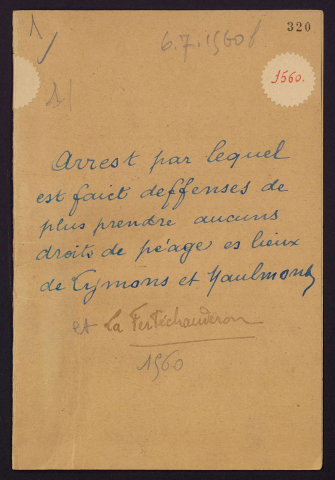 1
320
6.7.1560
1560.
Arrest par lequel
est faict deffenses de
plus prendre aucuns
droits de péage es lieux
de Cymons et Maulmont
et La Fertéchauderon
1560